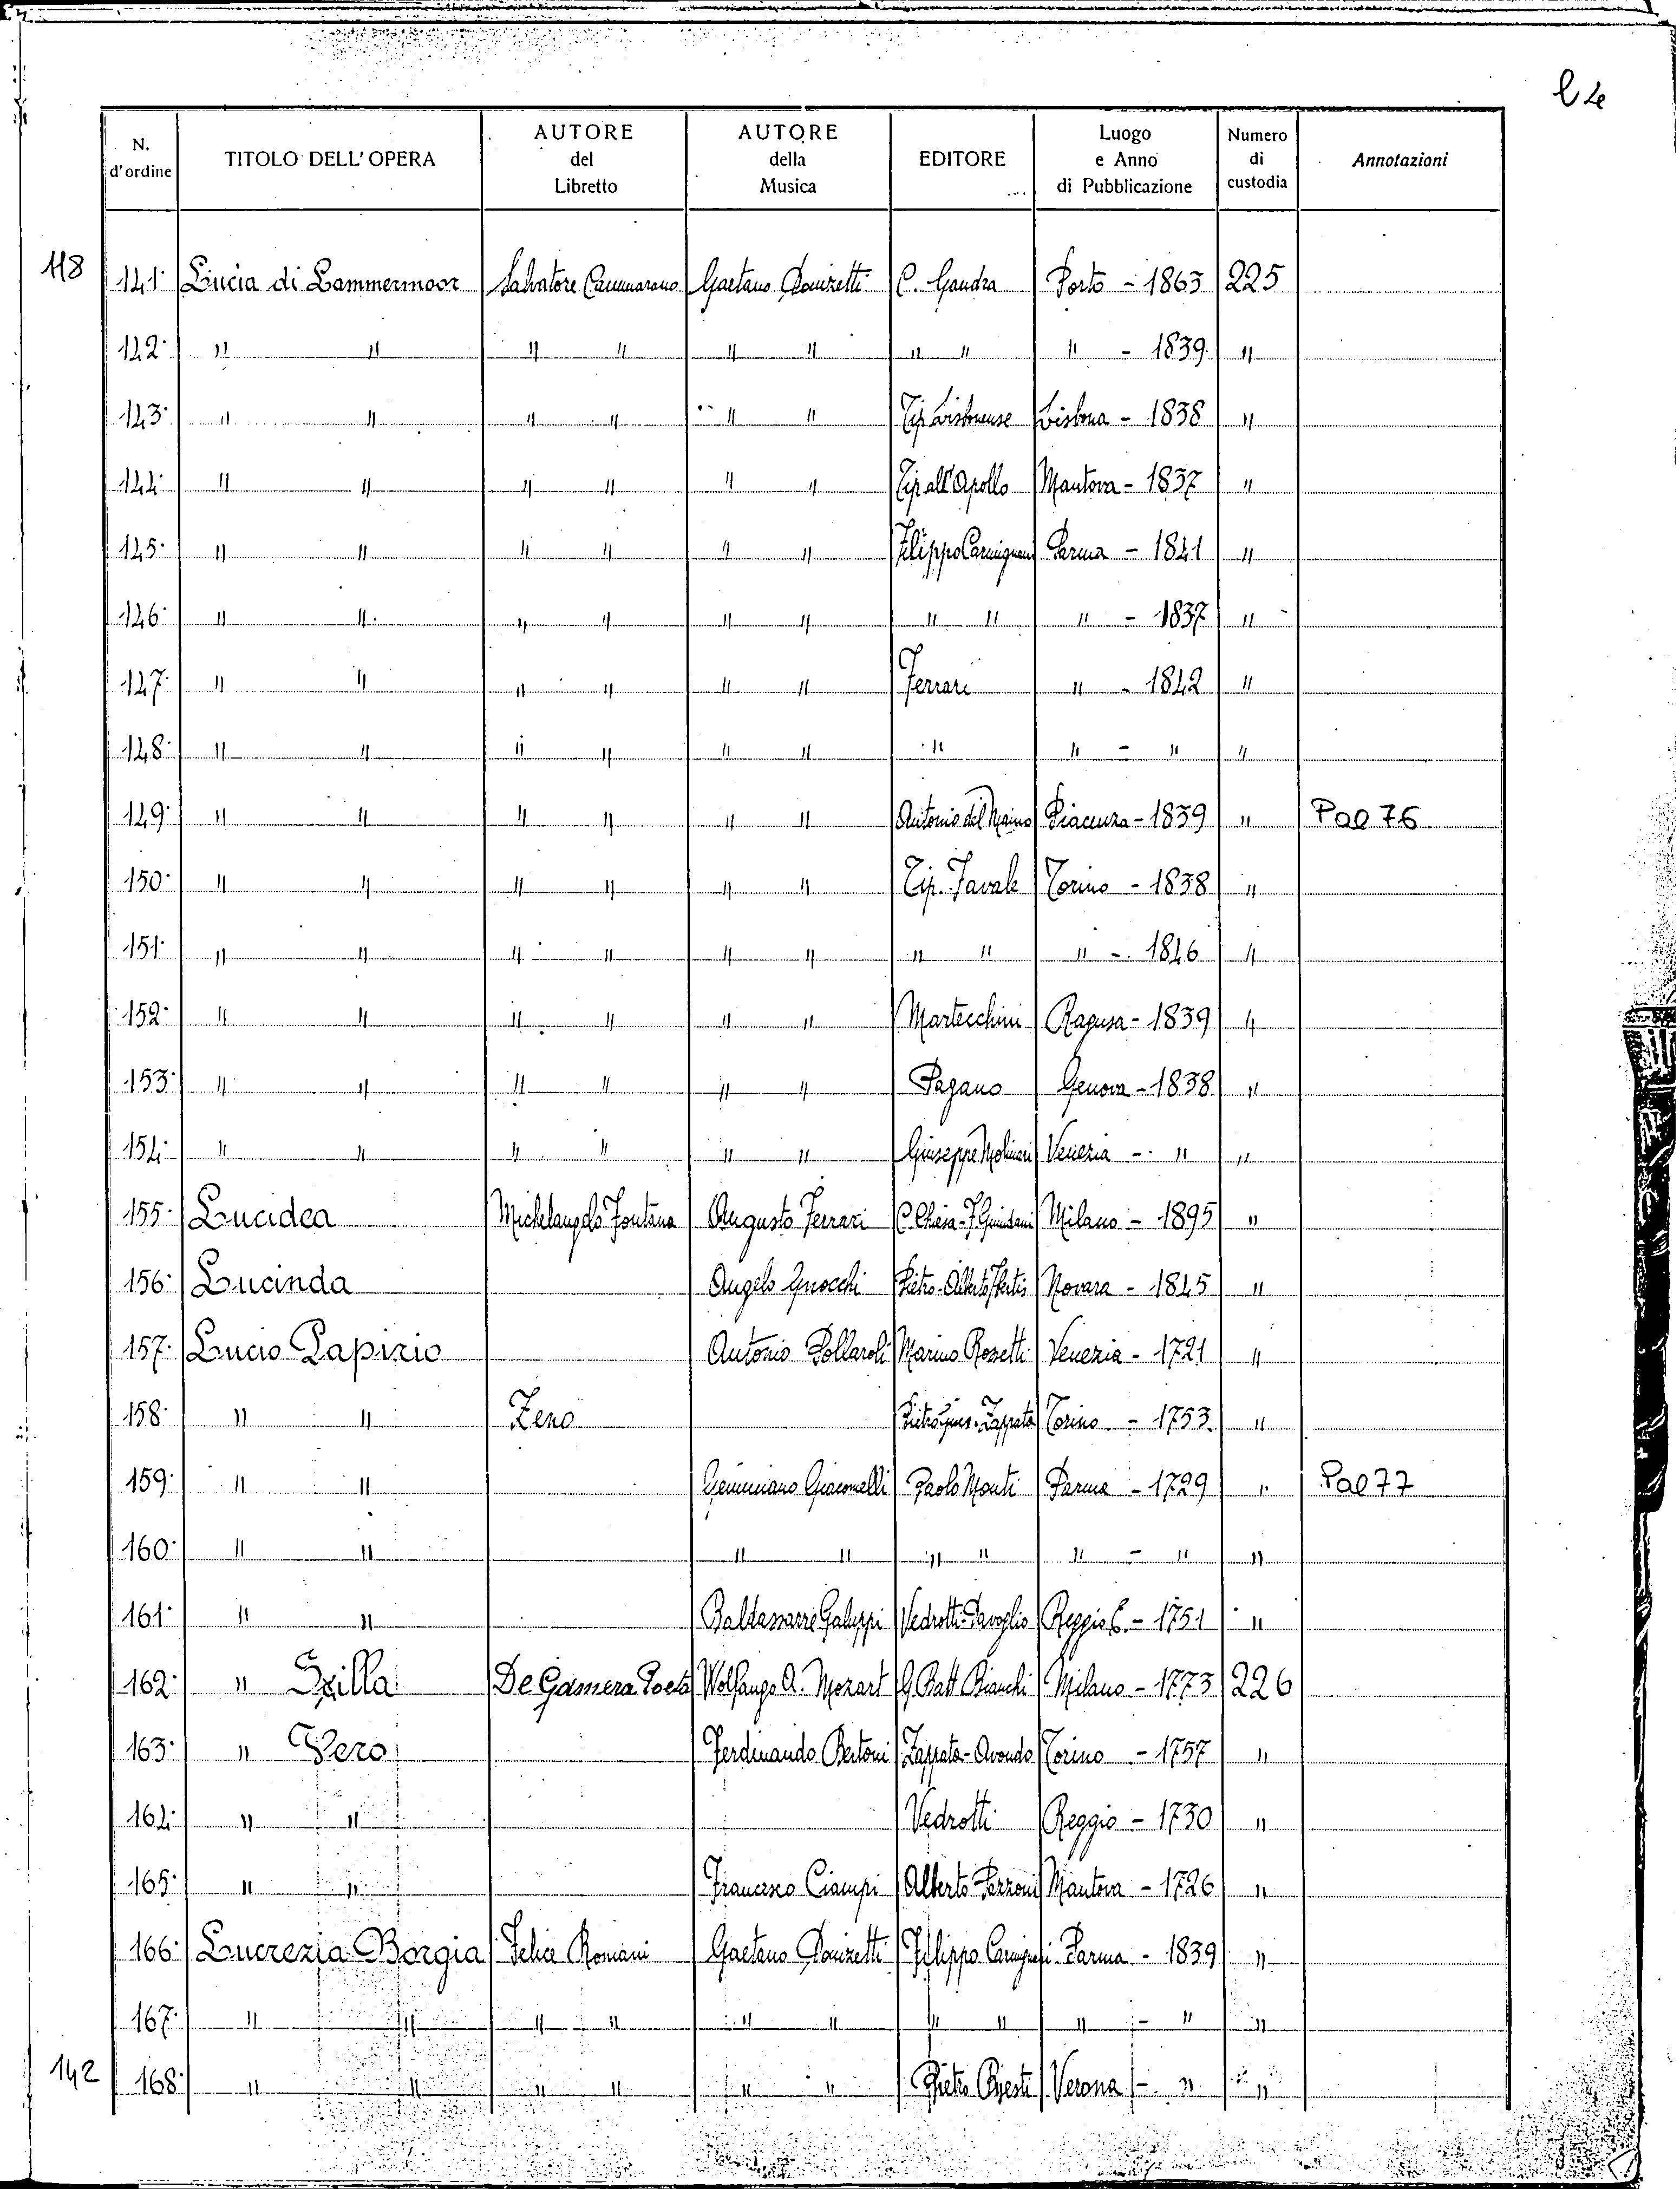 L4
N. d'ordine | TITOLO DELL'OPERA | AUTORE del Libretto | AUTORE della Musica | EDITORE | Luogo e Anno di Pubblicazione | Numero di custodia | Annotazioni
118 141 Lucia di Lammermoor Salvatore Cammarano Gaetano Donizetti C. Gandra Porto - 1863 225
142 " " " " " " " " " - 1839 "
143 " " " " " " Tip. Lisbonense Lisbona - 1838 "
144 " " " " " " Tip all'Apollo Mantova - 1837 "
145 " " " " " " Filippo Carmignani Parma - 1841 "
146 " " " " " " " " " - 1837 "
147 " " " " " " Ferrari " - 1842 "
148 " " " " " " " " - " "
149 " " " " " " Antonio del Maino Piacenza - 1839 " Pal 76
150 " " " " " " Tip. Favale Torino - 1838 "
151 " " " " " " " " " - 1846 "
152 " " " " " " Martecchini Ragusa - 1839 "
153 " " " " " " Pagano Genova - 1838 "
154 " " " " " " Giuseppe Molinari Venezia - " "
155 Lucidea Michelangelo Fontana Augusto Ferrari C. Chiesa - F. Guindani Milano - 1895 "
156 Lucinda Angelo Gnocchi Pietro-Alberto Novara - 1845 "
157 Lucio Papirio Antonio Pollaroli Marino Rossetti Venezia - 1721 "
158 " " Zeno Pietro Gius. Zappata Torino - 1753 "
159 " " Geminiano Giacomelli Paolo Monti Parma - 1729 " Pal 77
160 " " " " " " " - " "
161 " " Baldassarre Galuppi Vedrotti-Davoglio Reggio E. - 1751 "
162 " Silla De Gamera Poeta Wolfango A. Mozart G. Batt. Bianchi Milano - 1773 226
163 " Vero Ferdinando Bertoni Zappata-Avondo Torino - 1757 "
164 " " Vedrotti Reggio - 1730 "
165 " " Francesco Ciampi Alberto Pazzoni Mantova - 1726 "
166 Lucrezia Borgia Felice Romani Gaetano Donizetti Filippo Carmignani Parma - 1839 "
167 " " " " " " " " " - " "
142 168 " " " " " " Pietro Bisesti Verona - " "